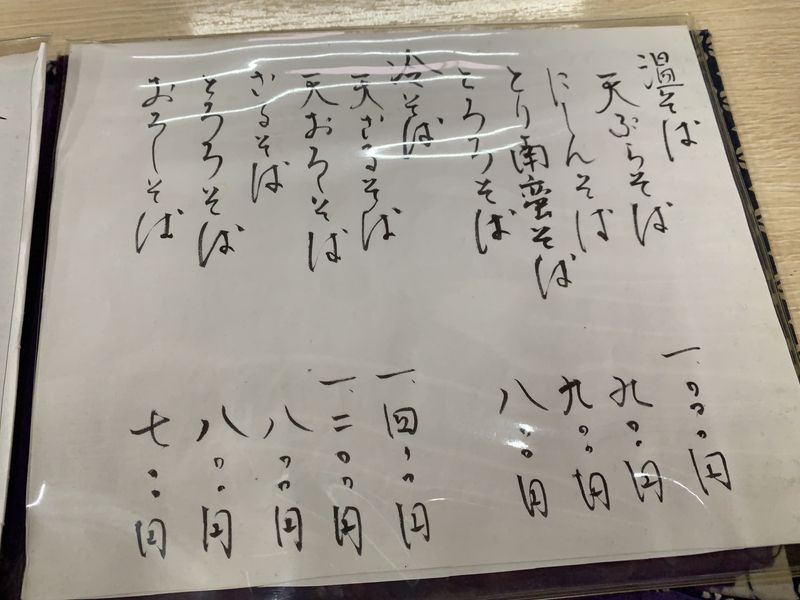 温そば
天ぷらそば 一、〇〇〇円
にしんそば 九〇〇円
とり南蛮そば 九〇〇円
とろろそば 八〇〇円
冷そば
天ざるそば 一、四〇〇円
天おろしそば 一、二〇〇円
ざるそば 八〇〇円
とろろそば 八〇〇円
おろしそば 七〇〇円